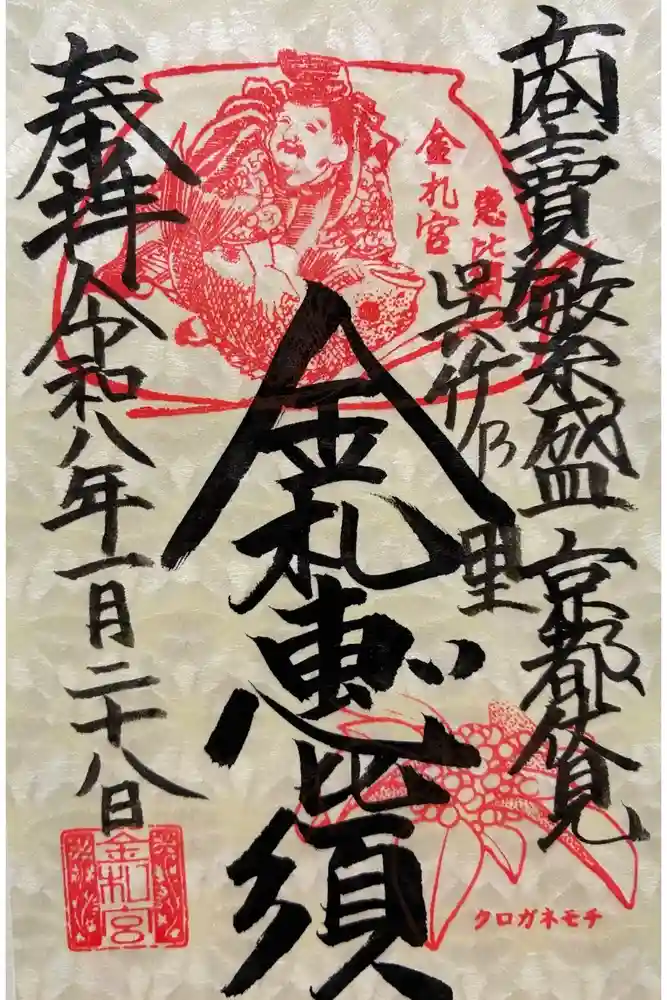 商賣繁盛 京都伏見
呉竹乃里
恵比須
金札宮
金札恵比須
奉拝 令和八年一月二十八日
金札宮
クロガネモチ